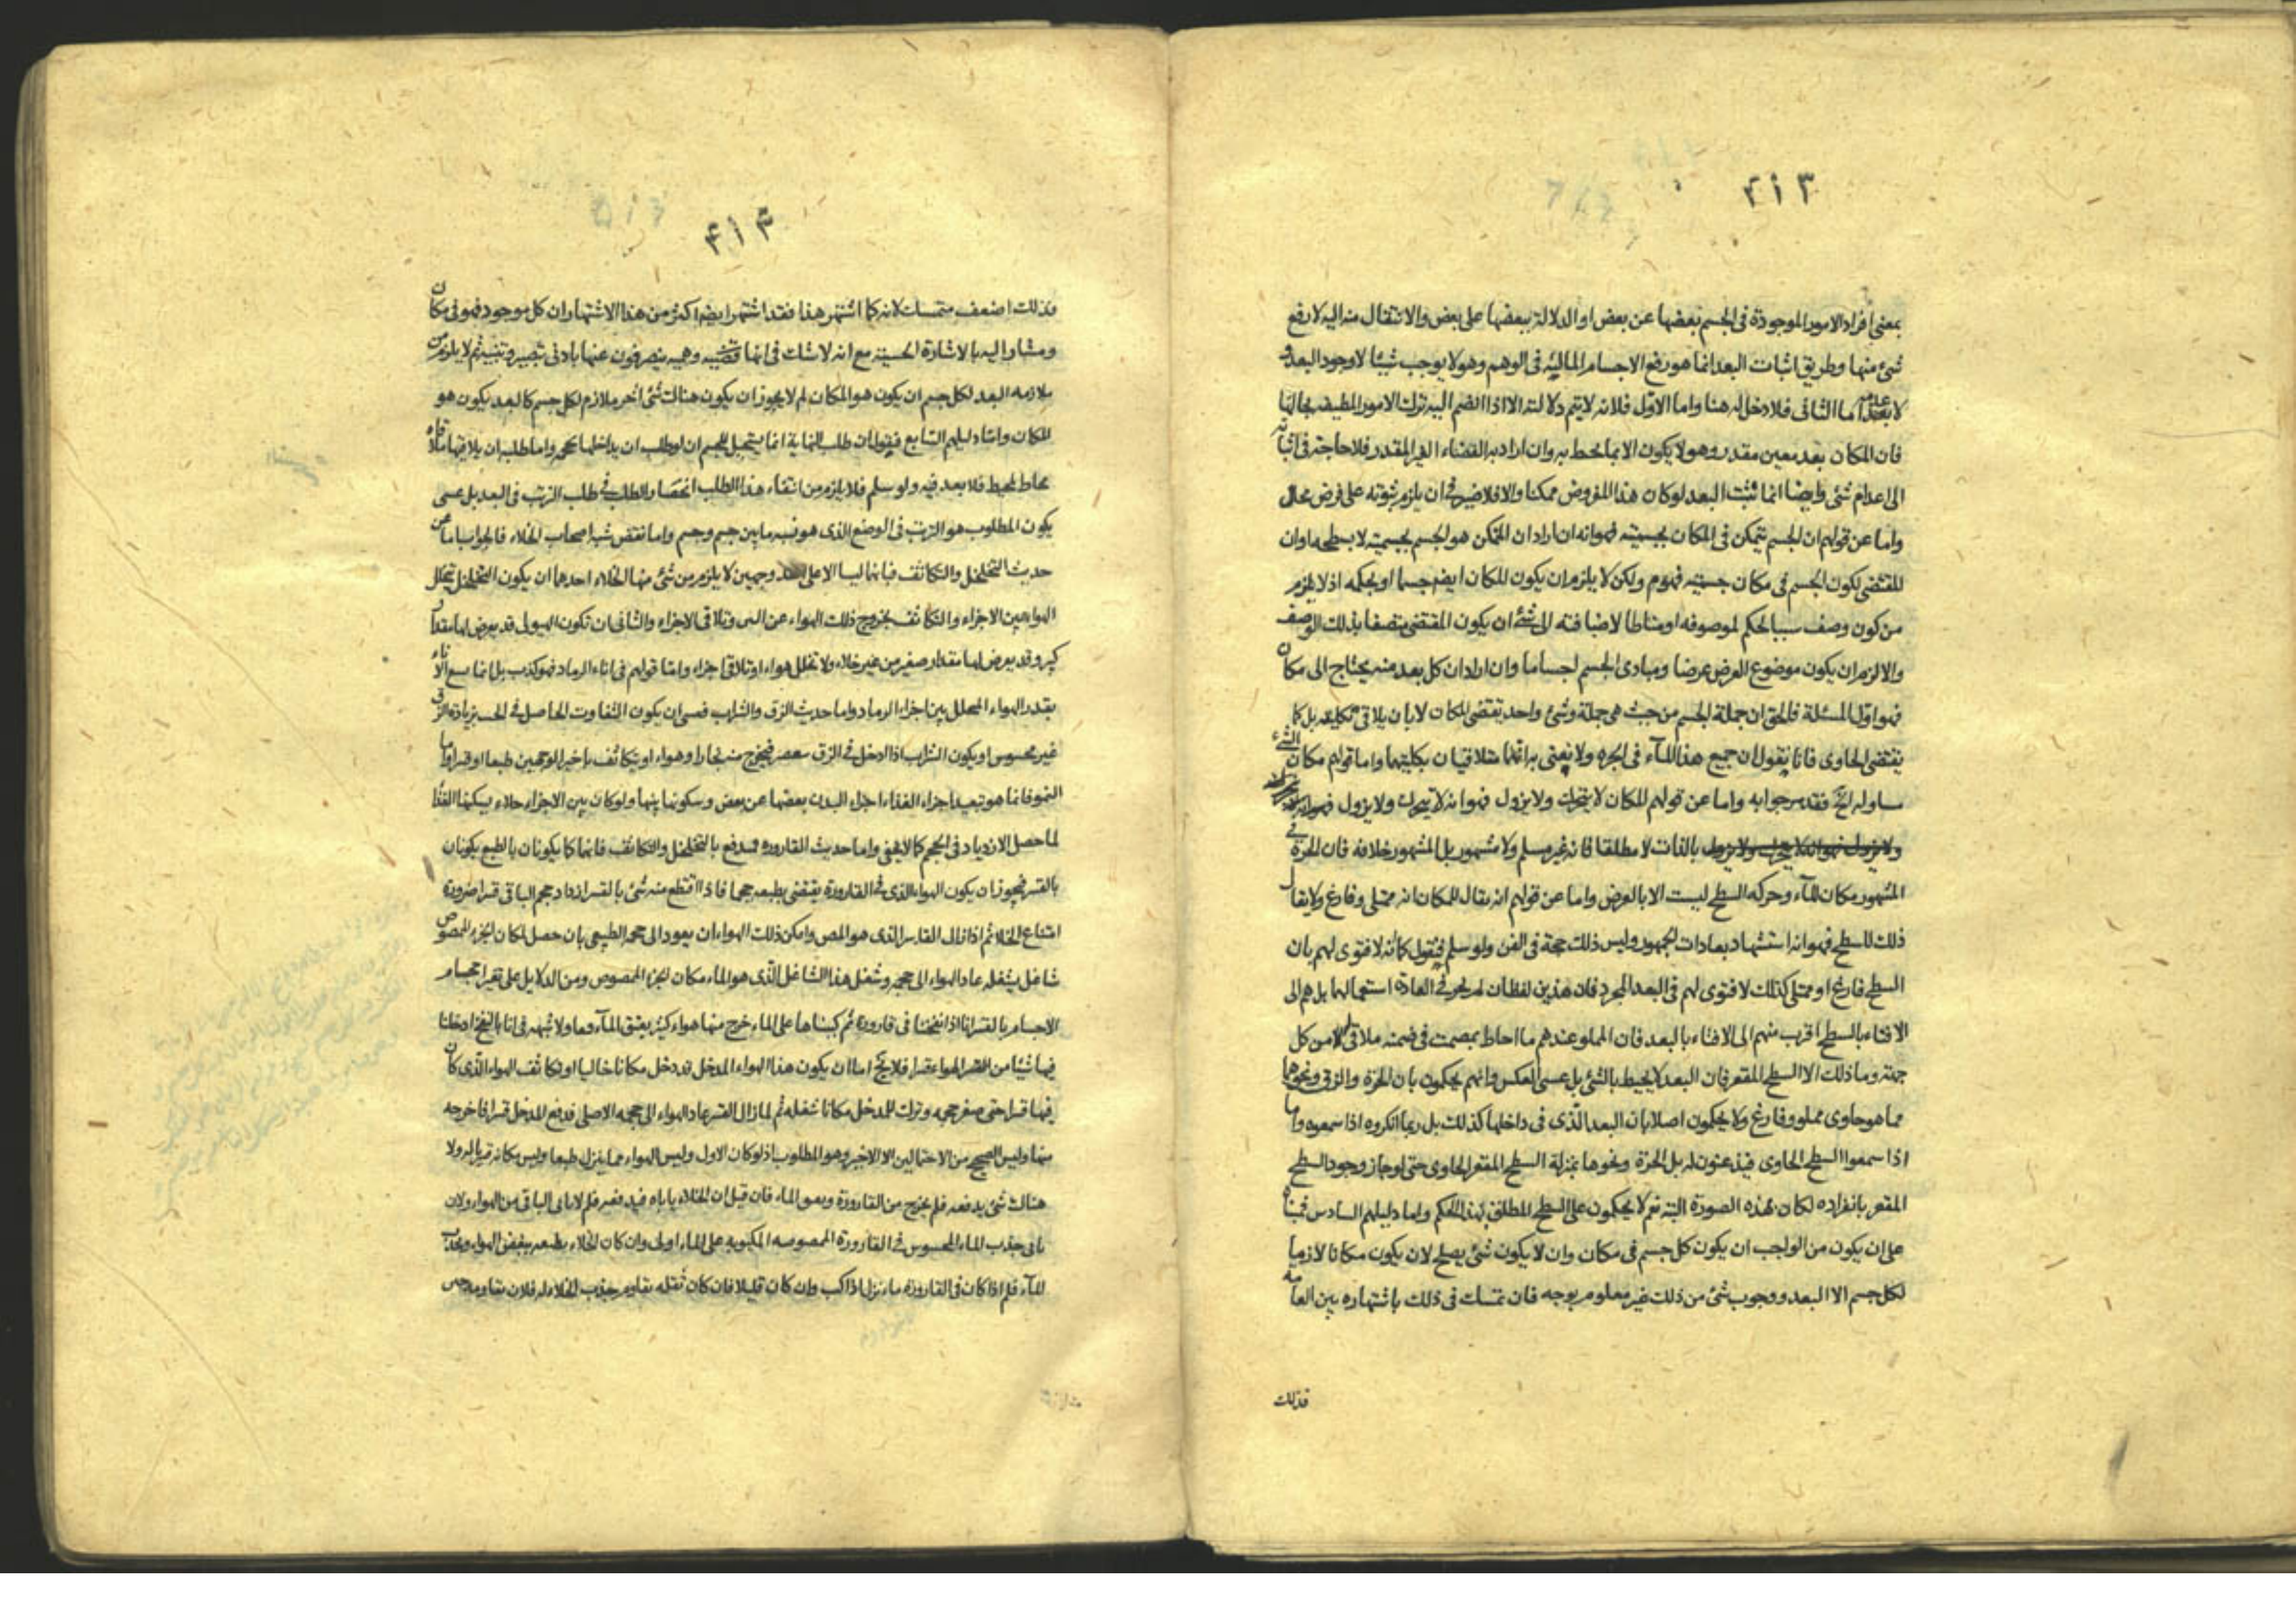 ۴۱۳
بمعنى افراد الامور الموجودة فى الجسم بعضها عن بعض او الدلالة ببعضها على بعض والانتقال منه اليه لا رفع
شئ منها وطريق اثبات البعد انما هو رفع الاجسام المالئة فى الوهم وهو لا يوجب شيئا لا وجود البعد و
لا عدمه اما الثانى فلا دخل له هنا واما الاول فلانه لا يتم دلالته الا اذا انضم اليه ترك الامور المطيفة بحالها
فان المكان بعد معين مقدر وهو لا يكون الا بما يحيط به وان اراد به الفضاء الغير المقدر فلا حاجة فى اثباته
الى اعدام شئ وايضا انما يثبت البعد لو كان هذا المفروض ممكنا والا فلا ضير فى ان يلزم ثبوته على فرض محال
واما عن قولهم ان الجسم يتمكن فى المكان بجسميته فهو انه ان اراد ان المتمكن هو الجسم بجسميته لا بسطحه او ان
المقتضى لكون الجسم فى مكان جسميته فهو م ولكن لا يلزم ان يكون المكان ايضا جسما او بحكمه اذ لا يلزم
من كون وصف سببا لحكم لموصوفه او مناطا لاضافته الى شئ ان يكون المقتضى متصفا بذلك الوصف
والا لزم ان يكون موضوع العرض عرضا ومبادى الجسم اجساما وان اراد ان كل بعد منه يحتاج الى مكان
فهو اول المسئلة فالحق ان جملة الجسم من حيث هى جملة وشئ واحد تقتضى المكان لا بان يلاقى بكليته بل كما
يقتضى الحاوى فانا نقول ان جميع هذا الماء فى الجرة ولا نعنى به انهما متلاقيان بكليتهما واما قولهم مكان الشئ
مساو له الخ فقد مر جوابه واما عن قولهم المكان لا يتحرك ولا يزول فهو انه لا يتحرك ولا يزول
بالذات لا مطلقا فانه غير مسلم ولا مشهور بل المشهور خلافه فان الجرة فى
المشهور مكان للماء وحركة السطح ليست الا بالعرض واما عن قولهم انه يقال للمكان انه ممتلى وفارغ ولا يقال
ذلك للسطح فهو انه استشهاد بعادات الجمهور وليس ذلك حجة فى الفن ولو سلم فنقول كما انه لا فتوى لهم بان
السطح فارغ او ممتلى كذلك لا فتوى لهم فى البعد المجرد فان هذين لفظان لم يجر فى العادة استعمالهما بل هم الى
الافتاء بالسطح اقرب منهم الى الافتاء بالبعد فان المملو عندهم ما احاط بمصمت فى ضمنه ملاق له من كل
جهة وما ذلك الا السطح المقعر فان البعد لا يحيط بالشئ بل عسى العكس وانهم يحكمون بان الجرة والزق ونحوهما
مما هو حاوى مملو وفارغ ولا يحكمون اصلا بان البعد الذى فى داخلها كذلك بل ربما انكروه اذا سمعوه واما
اذا سمعوا السطح الحاوى فيذعنون له بل الجرة ونحوها بمنزلة السطح المقعر الحاوى حتى لو جاز وجود السطح
المقعر بانفراده لكان بهذه الصورة البتة نعم لا يحكمون على السطح المطلق بهذا الحكم واما دليلهم السادس فمبناه
على ان يكون من الواجب ان يكون كل جسم فى مكان وان لا يكون شئ يصلح لان يكون مكانا لازما
لكل جسم الا البعد ووجوب شئ من ذلك غير معلوم بوجه فان تمسك فى ذلك باشتهاره بين العامه
فذلك
۴۱۴
فذلك اضعف متمسك لانه كما اشتهر هذا فقد اشتهر ايضا اكثر من هذا الاشتهار ان كل موجود فهو فى مكان
ومشار اليه بالاشارة الحسية مع انه لا شك فى انها قضية وهمية ينصرفون عنها بادنى تبصير وتنبيه ثم لا يلزم من
ملازمة البعد لكل جسم ان يكون هو المكان لم لا يجوز ان يكون هناك شئ آخر ملازم لكل جسم كالبعد يكون هو
المكان واما دليلهم السابع فيقول ان طلب النهاية انما يستحيل للجسم ان لو طلب ان يداخلها بحجمه واما طلبه ان يلاقيها ملاقاة
محاط لمحيط فلا بعد فيه ولو سلم فلا يلزم من انتفاء هذا الطلب انحصار الطلب فى طلب الترتب فى البعد بل عسى
يكون المطلوب هو الترتب فى الوضع الذى هو نسبة ما بين جسم وجسم واما نقض شبه اصحاب الخلاء فالجواب اما عن
حديث التخلخل والتكاثف فبانهما ليسا الا على وجهين لا يلزم من شئ منها الخلاء احدهما ان يكون التخلخل بتخلل
الهواء بين الاجزاء والتكاثف بخروج ذلك الهواء عن البين وتلاقى الاجزاء والثانى ان تكون الهيولى قد يعرض لها مقدار
كبير وقد يعرض لها مقدار صغير من غير خلاء ولا تخلل هواء او تلاقى اجزاء واما قولهم فى اناء الرماد فهو كذب بل انما يسع الاناء
بقدر الهواء المتخلل بين اجزاء الرماد واما حديث الزق والشراب فعسى ان يكون التفاوت الحاصل فى الحس بزيادة الزق
غير محسوس او يكون الشراب اذا ادخل فى الزق ينعصر فيخرج منه بخارا وهواء او يتكاثف باخير الوجهين طبعا او قسرا واما
النمو فانما هو تبعيد اجزاء الغذاء اجزاء البدن بعضها عن بعض وسكونها بينها ولو كان بين الاجزاء خلاء يسكنها الغذاء
لما حصل الازدياد فى الحجم كما لا يخفى واما حديث القارورة فيدفع بالتخلخل والتكاثف فانهما كما يكونان بالطبع يكونان
بالقسر فيجوز ان يكون الهواء الذى فى القارورة يقتضى بطبعه حجما فاذا اقتطع منه شئ بالقسر ازداد حجم الباقى قسرا ضرورة
امتناع الخلاء ثم اذا زال القاسر الذى هو المص وامكن ذلك الهواء ان يعود الى حجمه الطبيعى بان حصل لمكان الجزء الممصوص
شاغل يشغله عاد الهواء الى حجمه وشغل هذا الشاغل الذى هو الماء مكان الجزء الممصوص ومن الدلايل على تغير احجام
الاجسام بالقسر انا اذا نفخنا فى قارورة ثم كببناها على الماء خرج منها هواء كثير يبقبق الماء وما ولا شبهه فى انا بالنفخ ادخلنا
فيها شيئا من الهواء قسرا فلا يخ اما ان يكون هذا الهواء المدخل قد دخل مكانا خاليا او تكاثف الهواء الذى كان
فيها قسرا حتى صغر حجمه وترك للمدخل مكانا شغله ثم لما زال القسر عاد الهواء الى حجمه الاصلى فدفع المدخل قسرا فاخرجه
منها وليس الصحيح من الاحتمالين الا الاخير وهو المطلوب اذ لو كان الاول وليس الهواء مما ينزل طبعا وليس مكانه قريبا له ولا
هناك شئ يدفعه فلم يخرج من القارورة ويعمق الماء فان قيل ان الخلاء ياباه فيدفعه فلم لا يابى الباقى من الهواء ولان
يابى جذب الماء المحسوس فى القارورة الممصوصه المكبوبه على الماء اولى وان كان الخلاء بطبعه يبغض الهواء ويجذب
الماء فلم اذا كان فى القارورة ماء نزل اذا كب وان كان قليلا فان كان ثقله يقاوم جذب الخلاء له فلان يقاومه